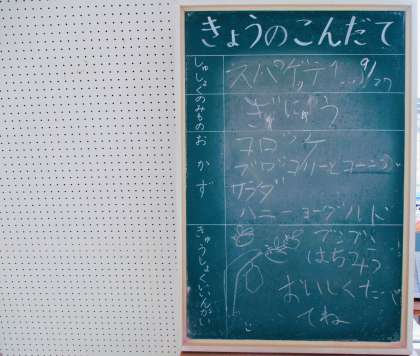 きょうのこんだて
しゅしょく
スパゲッティ… 9/27
のみもの
ぎゅにゅう
おかず
コロッケ
ブロッコリーとコーンの
サラダ
ハニーヨーグルト
きゅうしょくいいんかい
ブンブン
はちみつ
おいしくたべ
てね